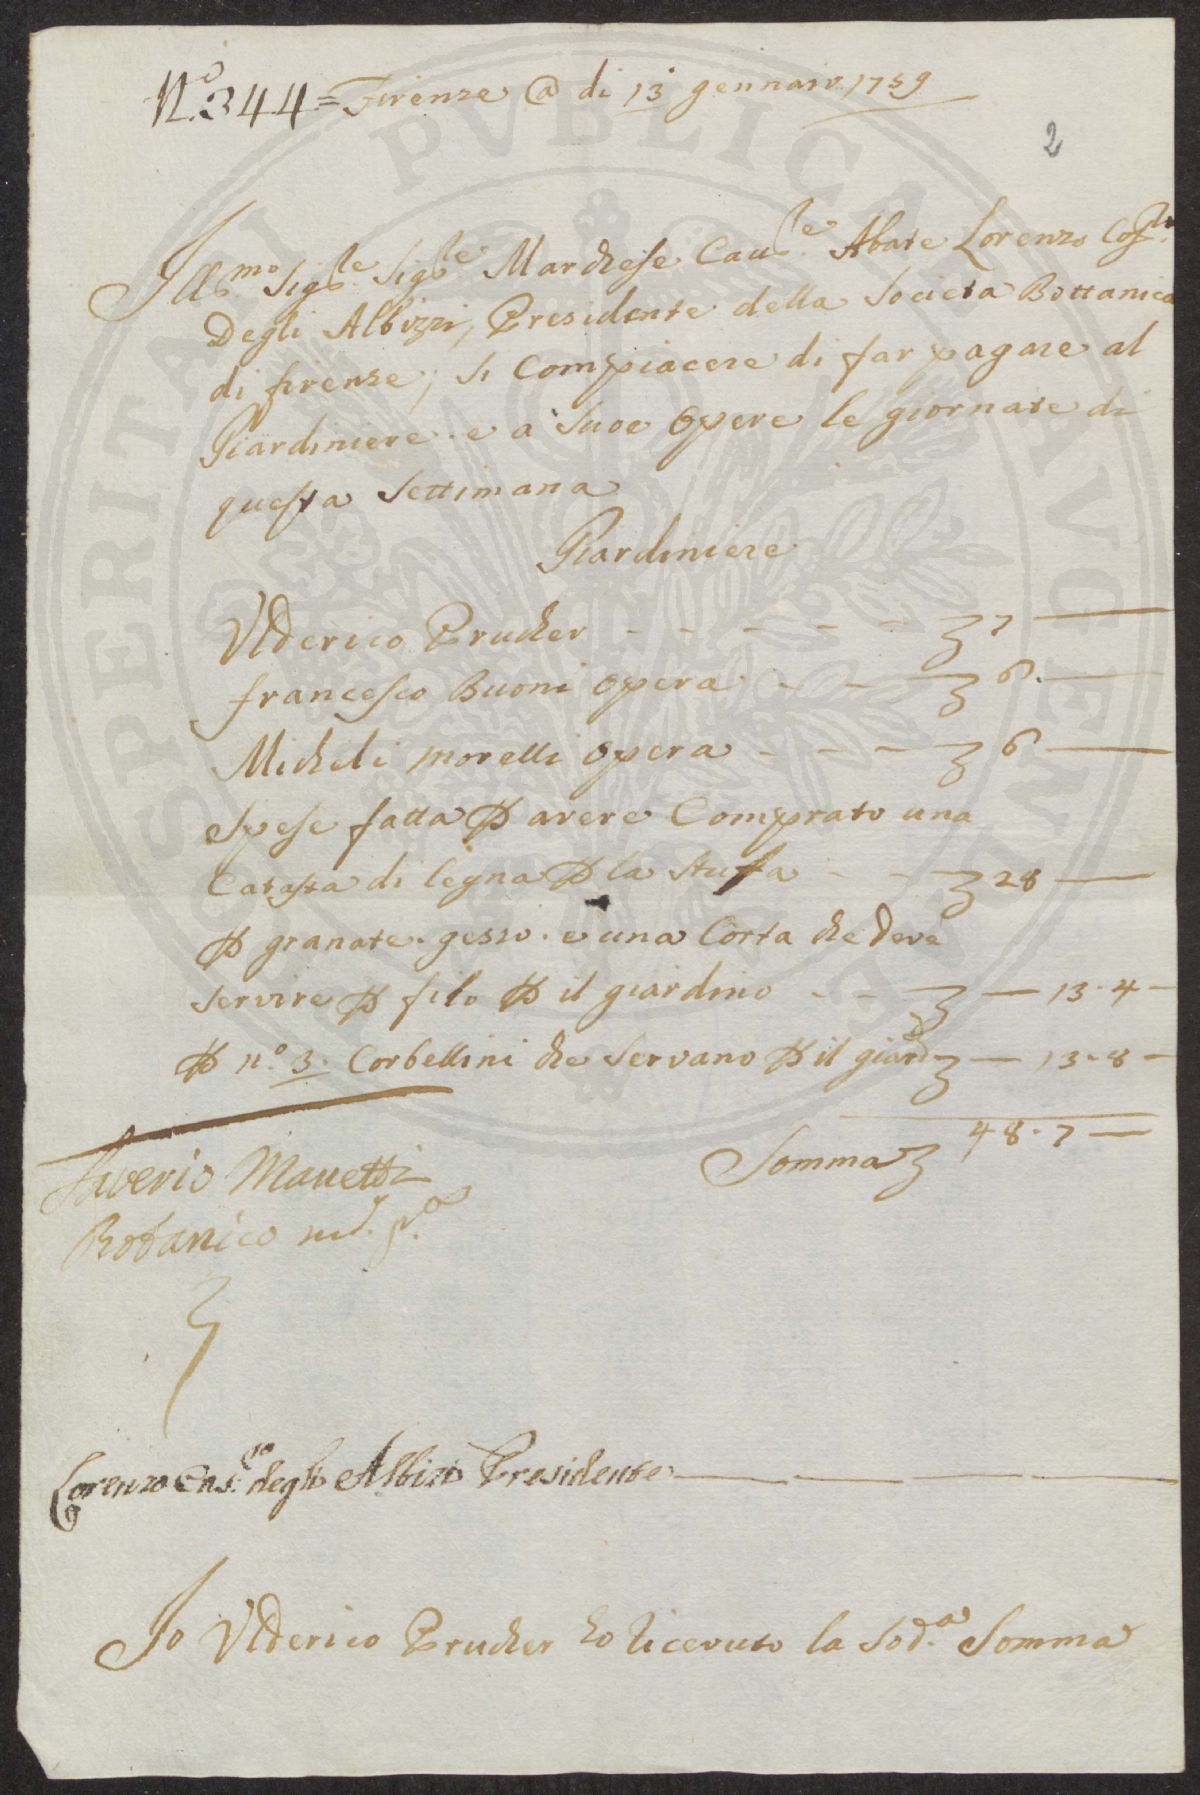 N.o 344 = Firenze @ di 13 gennaio 1759
2
Ill.mo Sig.re Sig.re Marchese Cau.re Abate Lorenzo
Degli Albizzi, Presidente della Societa Bottanica
di firenze, si Compiacere di far pagare al
Giardiniere e a Suoe Opere le giornate di
questa Settimana
Giardiniere
Vlderico Prucher - - - - - 7 —
francesco Buoni opera - - - 6. —
Micheli morelli opera - - - 6 —
Spese fatta ꝑ avere Comprato una
Catasta di legna ꝑ la stufa - - 28 —
ꝑ granate. gesso. e una Corta che deve
servire ꝑ filo ꝑ il giardino - - — 13.4 —
ꝑ n.o 3. Corbellini che servano ꝑ il giard — 13.8 —
Somma 48.7 —
Saverio Manetti
Botanico m.
Lorenzo degli Albizi Presidente — — — —
Io Vlderico Prucher ho Ricevuto la Sod.a Somma
SPERITATI PVBLICAE AVGENDAE